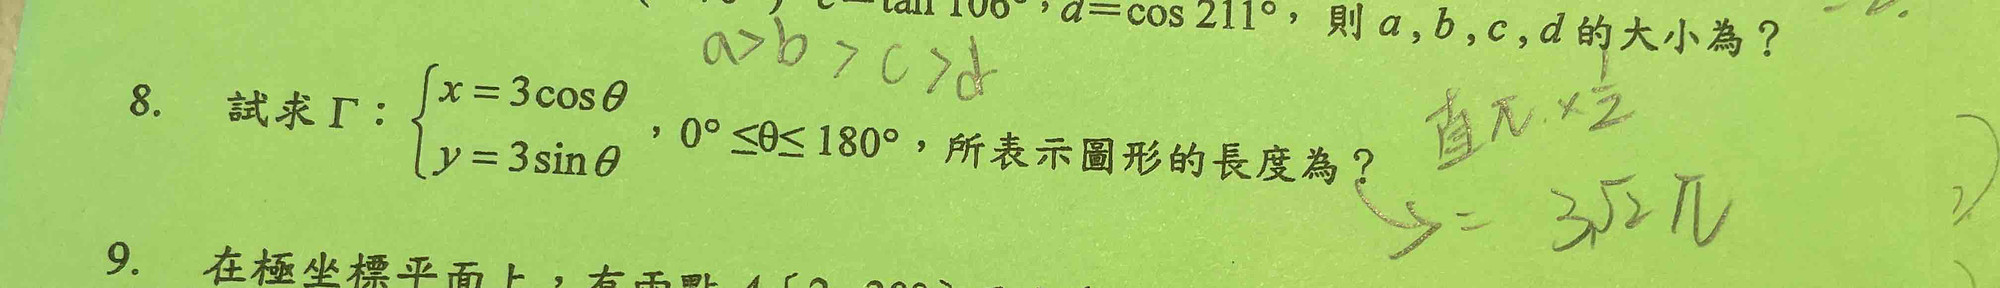 c=tan 106°，d=cos 211°，則 a , b , c , d 的大小為？
a>b>c>d
8. 試求 Γ：{x=3cosθ
y=3sinθ，0°≤θ≤180°，所表示圖形的長度為？
直π×1/2
= 3√2 π
9. 在極坐標平面上，有兩點 A